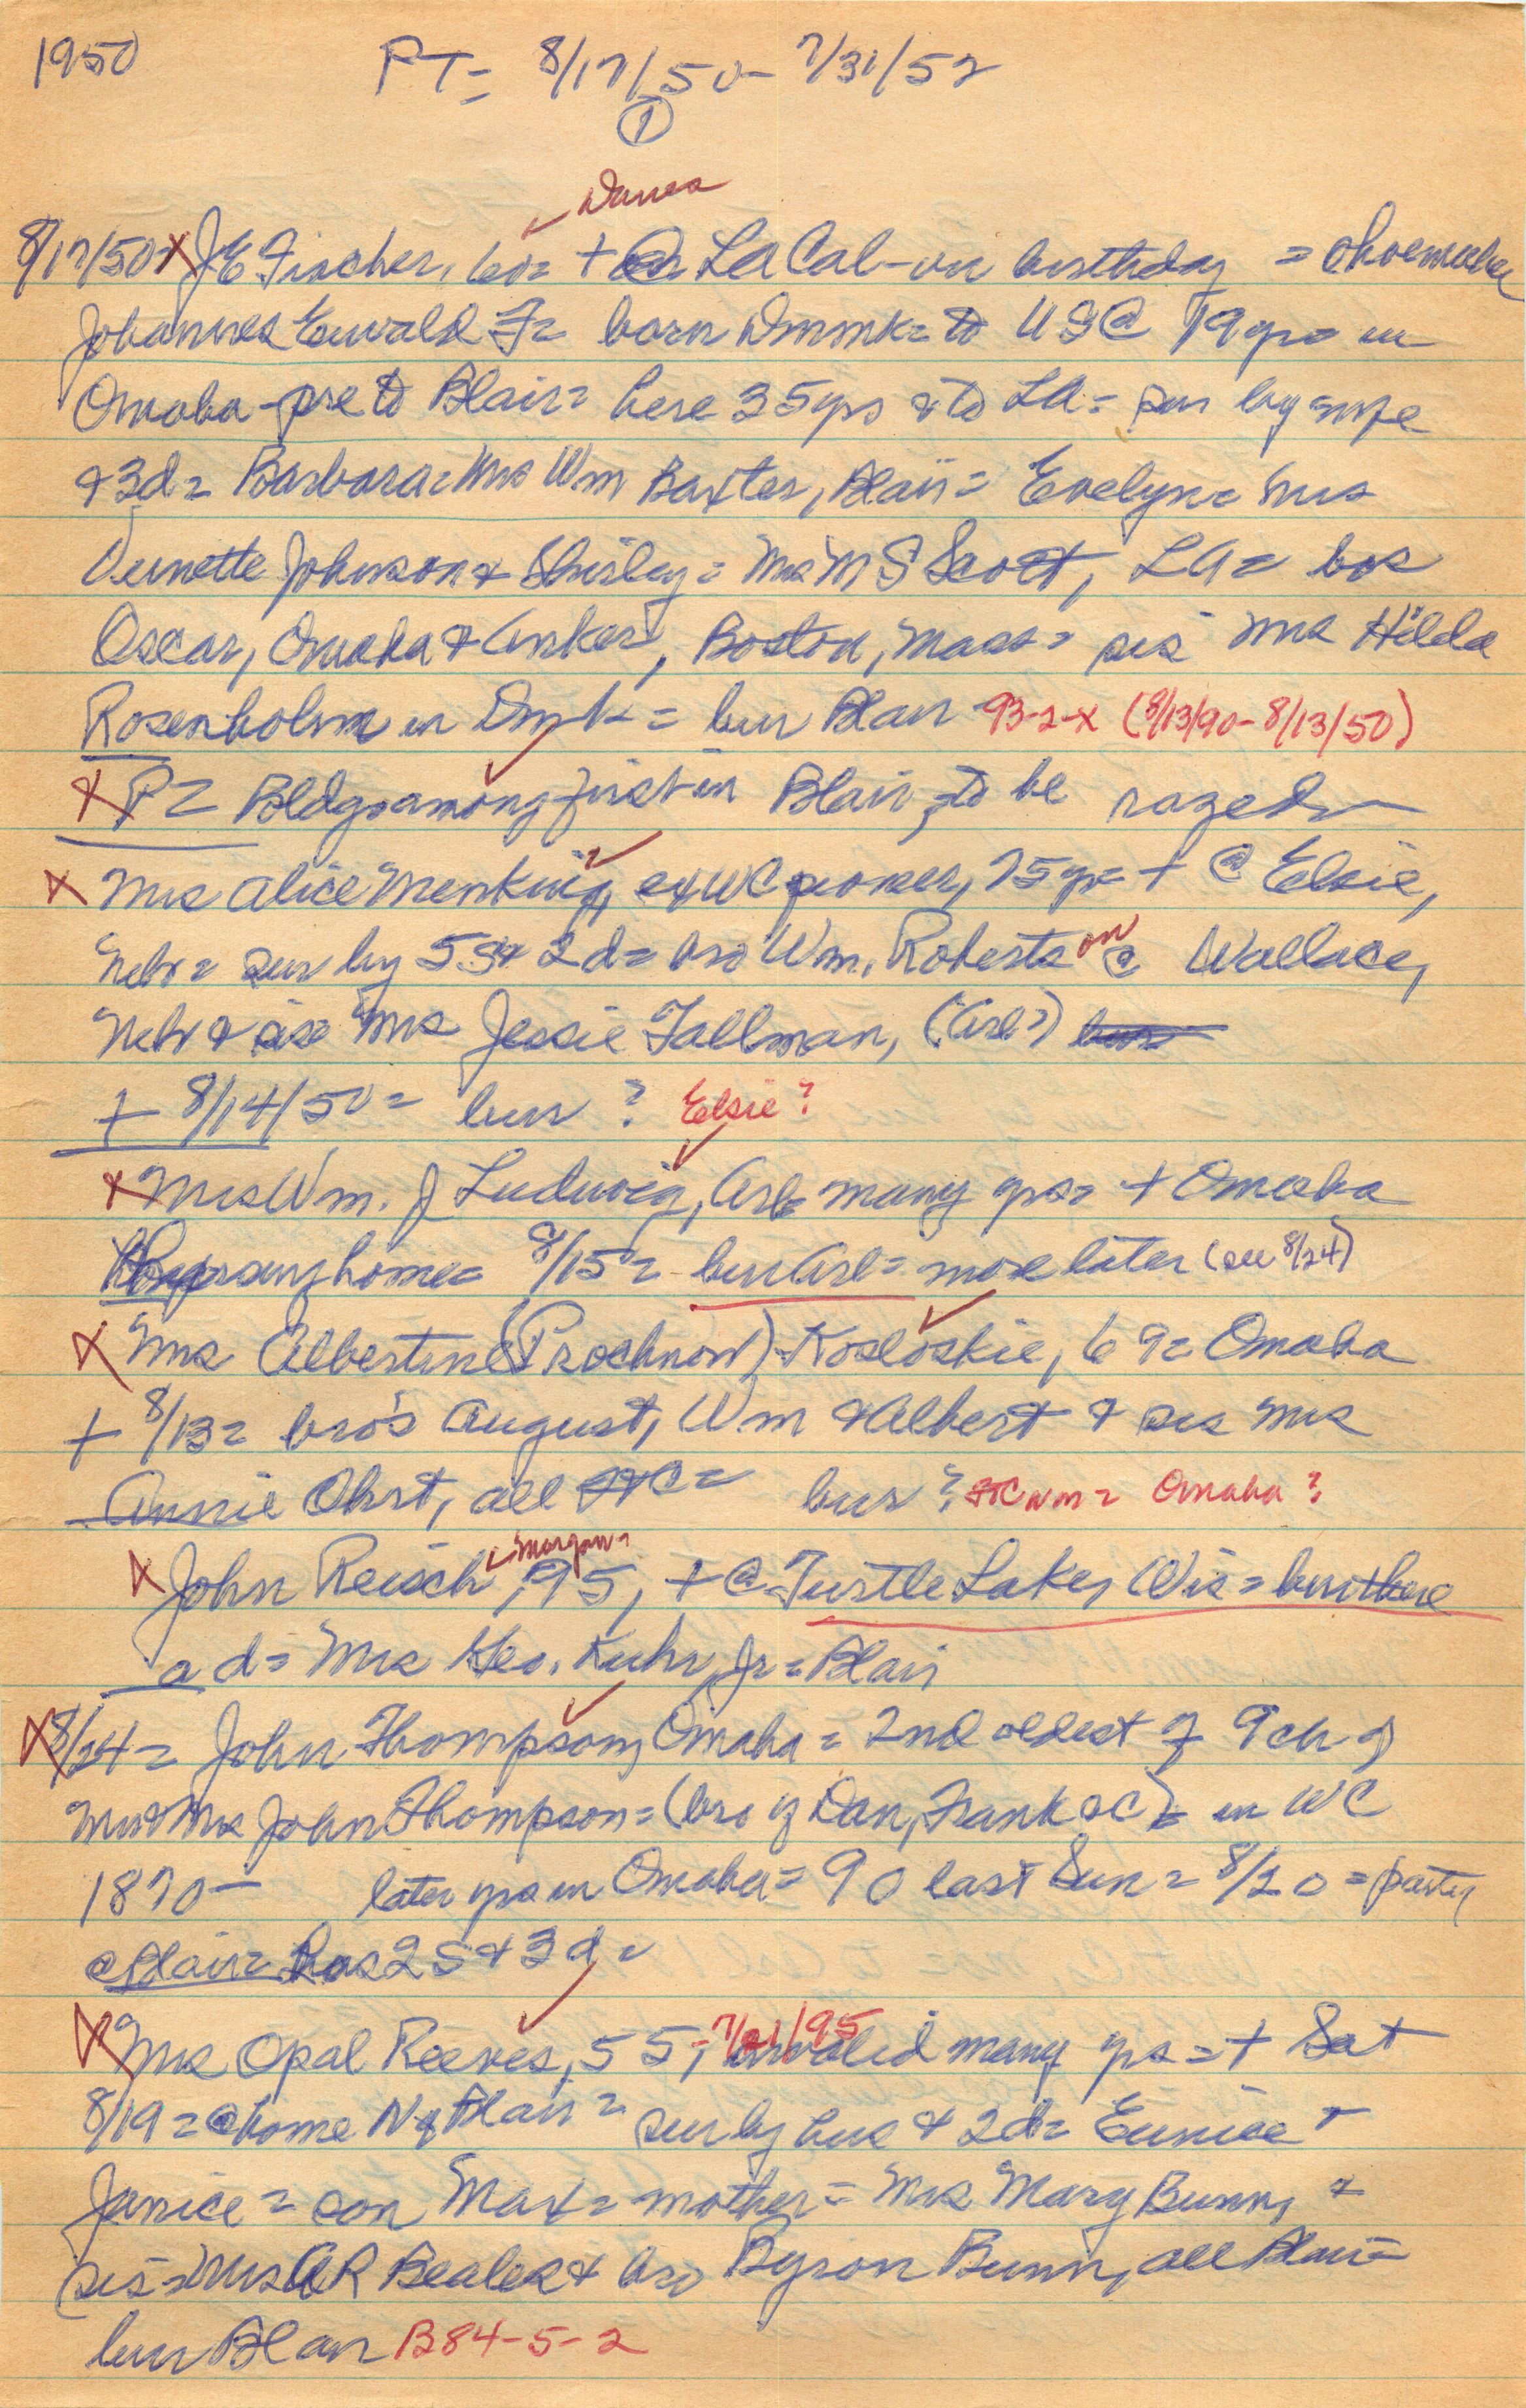 1950 PT= 8/17/50 - 7/31/52
①
✓ Danes
8/17/50 X J E Fischer, 60= + @ LA Cal - on birthday = shoemaker
Johannes Ewald F= born Dnmmk= to US @ 19 yrs= in
Omaha - pre to Blair= here 35 yrs & to LA= sur by wife
& 3d= Barbara= Mrs Wm Baxter, Blair= Evelyn= Mrs
Johnson & Shirley= Mrs M S Scott, LA= bos
Oscar, Omaha & Anker, Boston, Mass= sis Mrs Hilda
Rosenholm in Dmk= bur Blair 93-2-X (8/13/90 - 8/13/50)
X P= Bldgs among first in Blair, to be razed
X Mrs Alice Menking, ex WC pioneer, 75 yr= + @ Elsie,
Nebr= sur by 5s & 2d= bro Wm. Roberts on @ Wallace,
Nebr & sis Mrs Jessie Tallman, (Arl?) bur
+ 8/14/50= bur ? Elsie?
X Mrs Wm. J Ludwig, Arl= many yrs= + Omaha
home= 8/15= bur Arl= more later (see 8/24)
X Mrs Albertine (Prochnow) Kosloskie, 69= Omaha
+ 8/13= bro's August, Wm & Albert & sis Mrs
Annie Ohrt, all FtC= bur? FtC nm= Omaha?
X John Reisch, ✓ Morgan= 95, + @ Turtle Lake, Wis= bur there
a d= Mrs Geo. Kuhr, Jr= Blair
X 8/24= John Thompson, Omaha= 2nd oldest of 9 ch of
Mr & Mrs John Thompson= (bro of Dan, Frank & C)= in WC
1870 - later yrs in Omaha= 90 last Sun= 8/20= party
@ Blair= has 2s & 3d=
X Mrs Opal Reeves, 55, -7/21/95 invalid many yrs= + Sat
8/19= @ home N of Blair= sur by hus & 2d= Eunice &
Janice= son Max= mother= Mrs Mary Bunn, &
sis= Mrs A R Beales & bro Byron Bunn, all Blair=
bur Blair B84-5-2